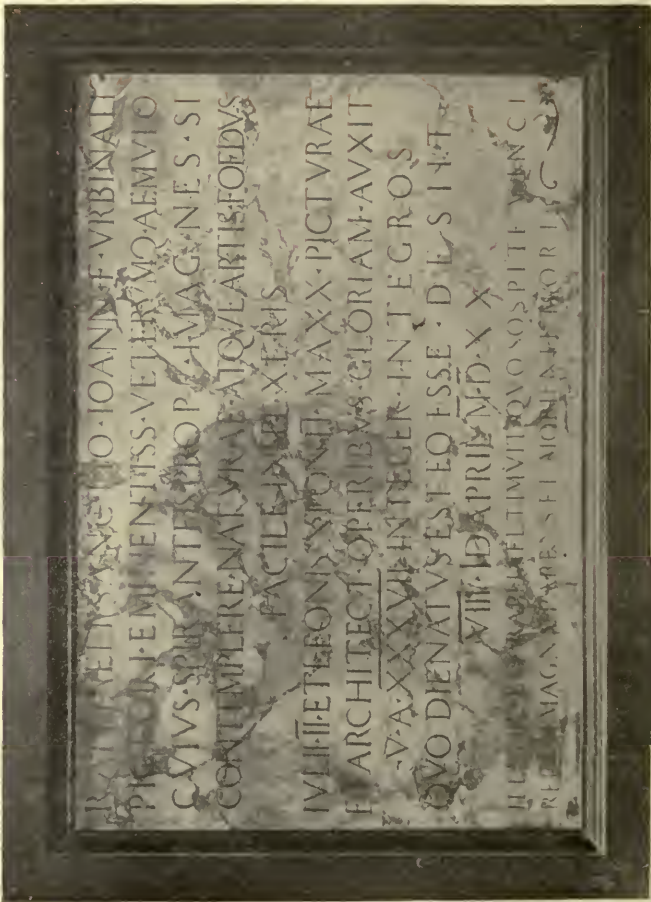 RAPHAELI·SANCTIO·IOANN·F·VRBINATI
PICTORI·EMINENTISS·VETERVMQ·AEMVLO
CVIVS·SPIRANTES·PROPE·IMAGINES·SI
CONTEMPLERE·NATVRAE·ATQVE·ARTIS·FOEDVS
FACILE·INSPEXERIS
IVLII·II·ET·LEONIS·X·PONTT·MAXX·PICTVRAE
ET·ARCHITECT·OPERIBVS·GLORIAM·AVXIT
V·A·XXXVII·INTEGER·INTEGROS
QVO·DIE·NATVS·EST·EO·ESSE·DESIIT
VIII·ID·APRIL·M·D·X X
ILLE HIC EST RAPHAEL TIMVIT QVO SOSPITE VINCI
RERVM MAGNA PARENS ET MORIENTE MORI